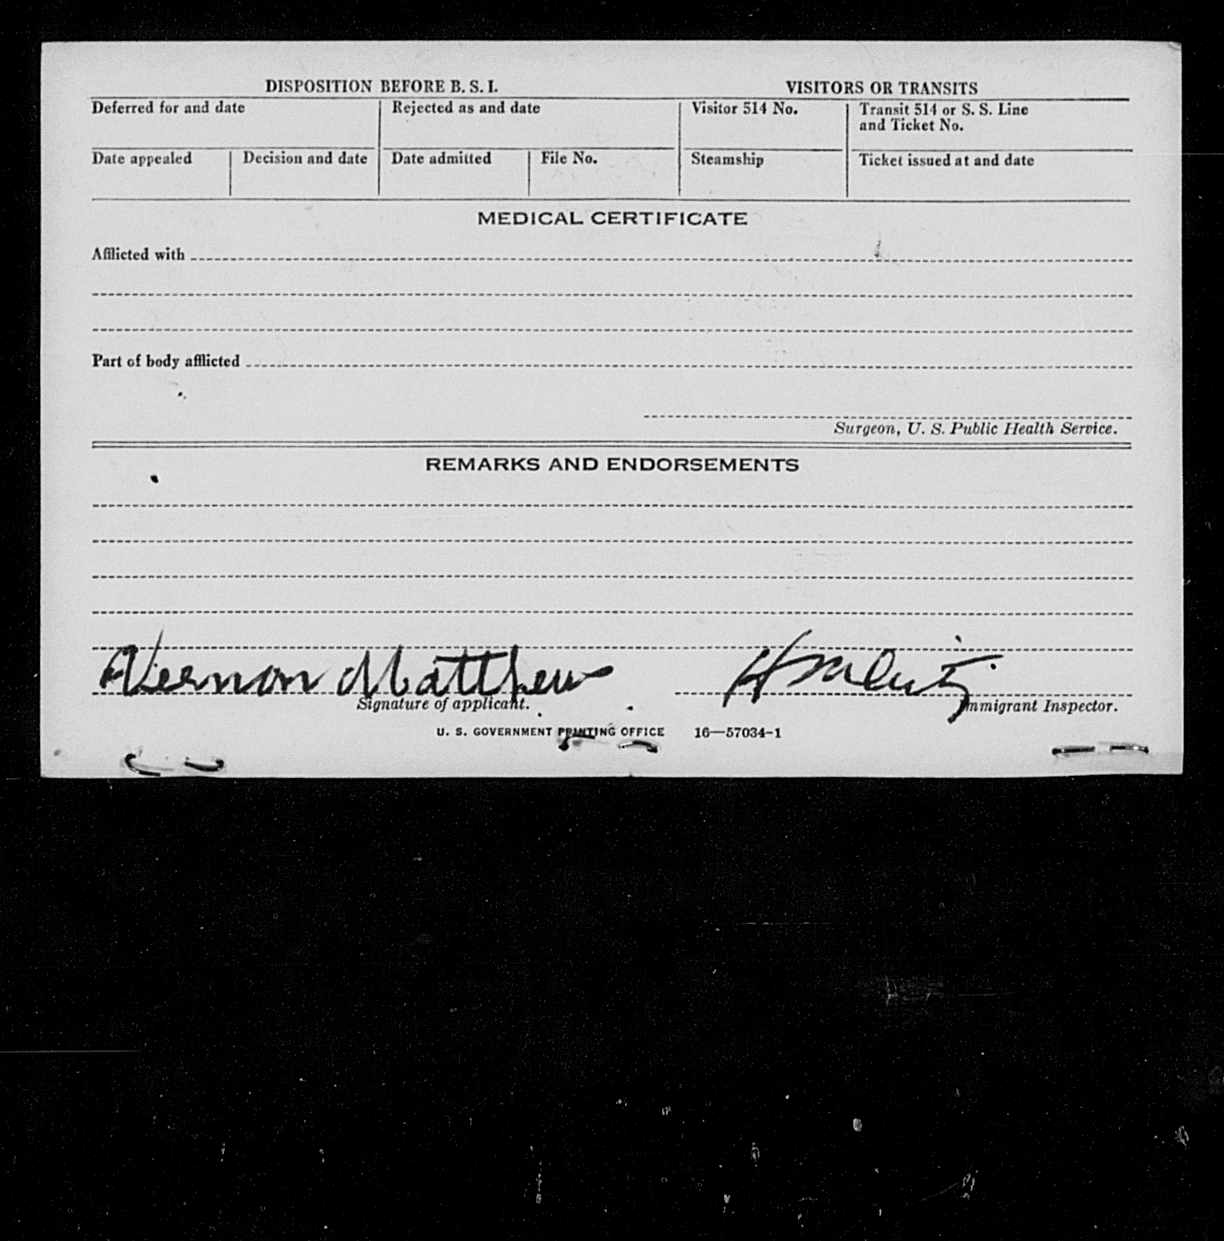 DISPOSITION BEFORE B. S. I.
VISITORS OR TRANSITS
Deferred for and date
Rejected as and date
Visitor 514 No.
Transit 514 or S. S. Line
and Ticket No.
Date appealed
Decision and date
Date admitted
File No.
Steamship
Ticket issued at and date
MEDICAL CERTIFICATE
Afflicted with
Part of body afflicted
Surgeon, U. S. Public Health Service.
REMARKS AND ENDORSEMENTS
Vernon Matthews
Signature of applicant.
Immigrant Inspector.
U. S. GOVERNMENT PRINTING OFFICE 16—57034-1